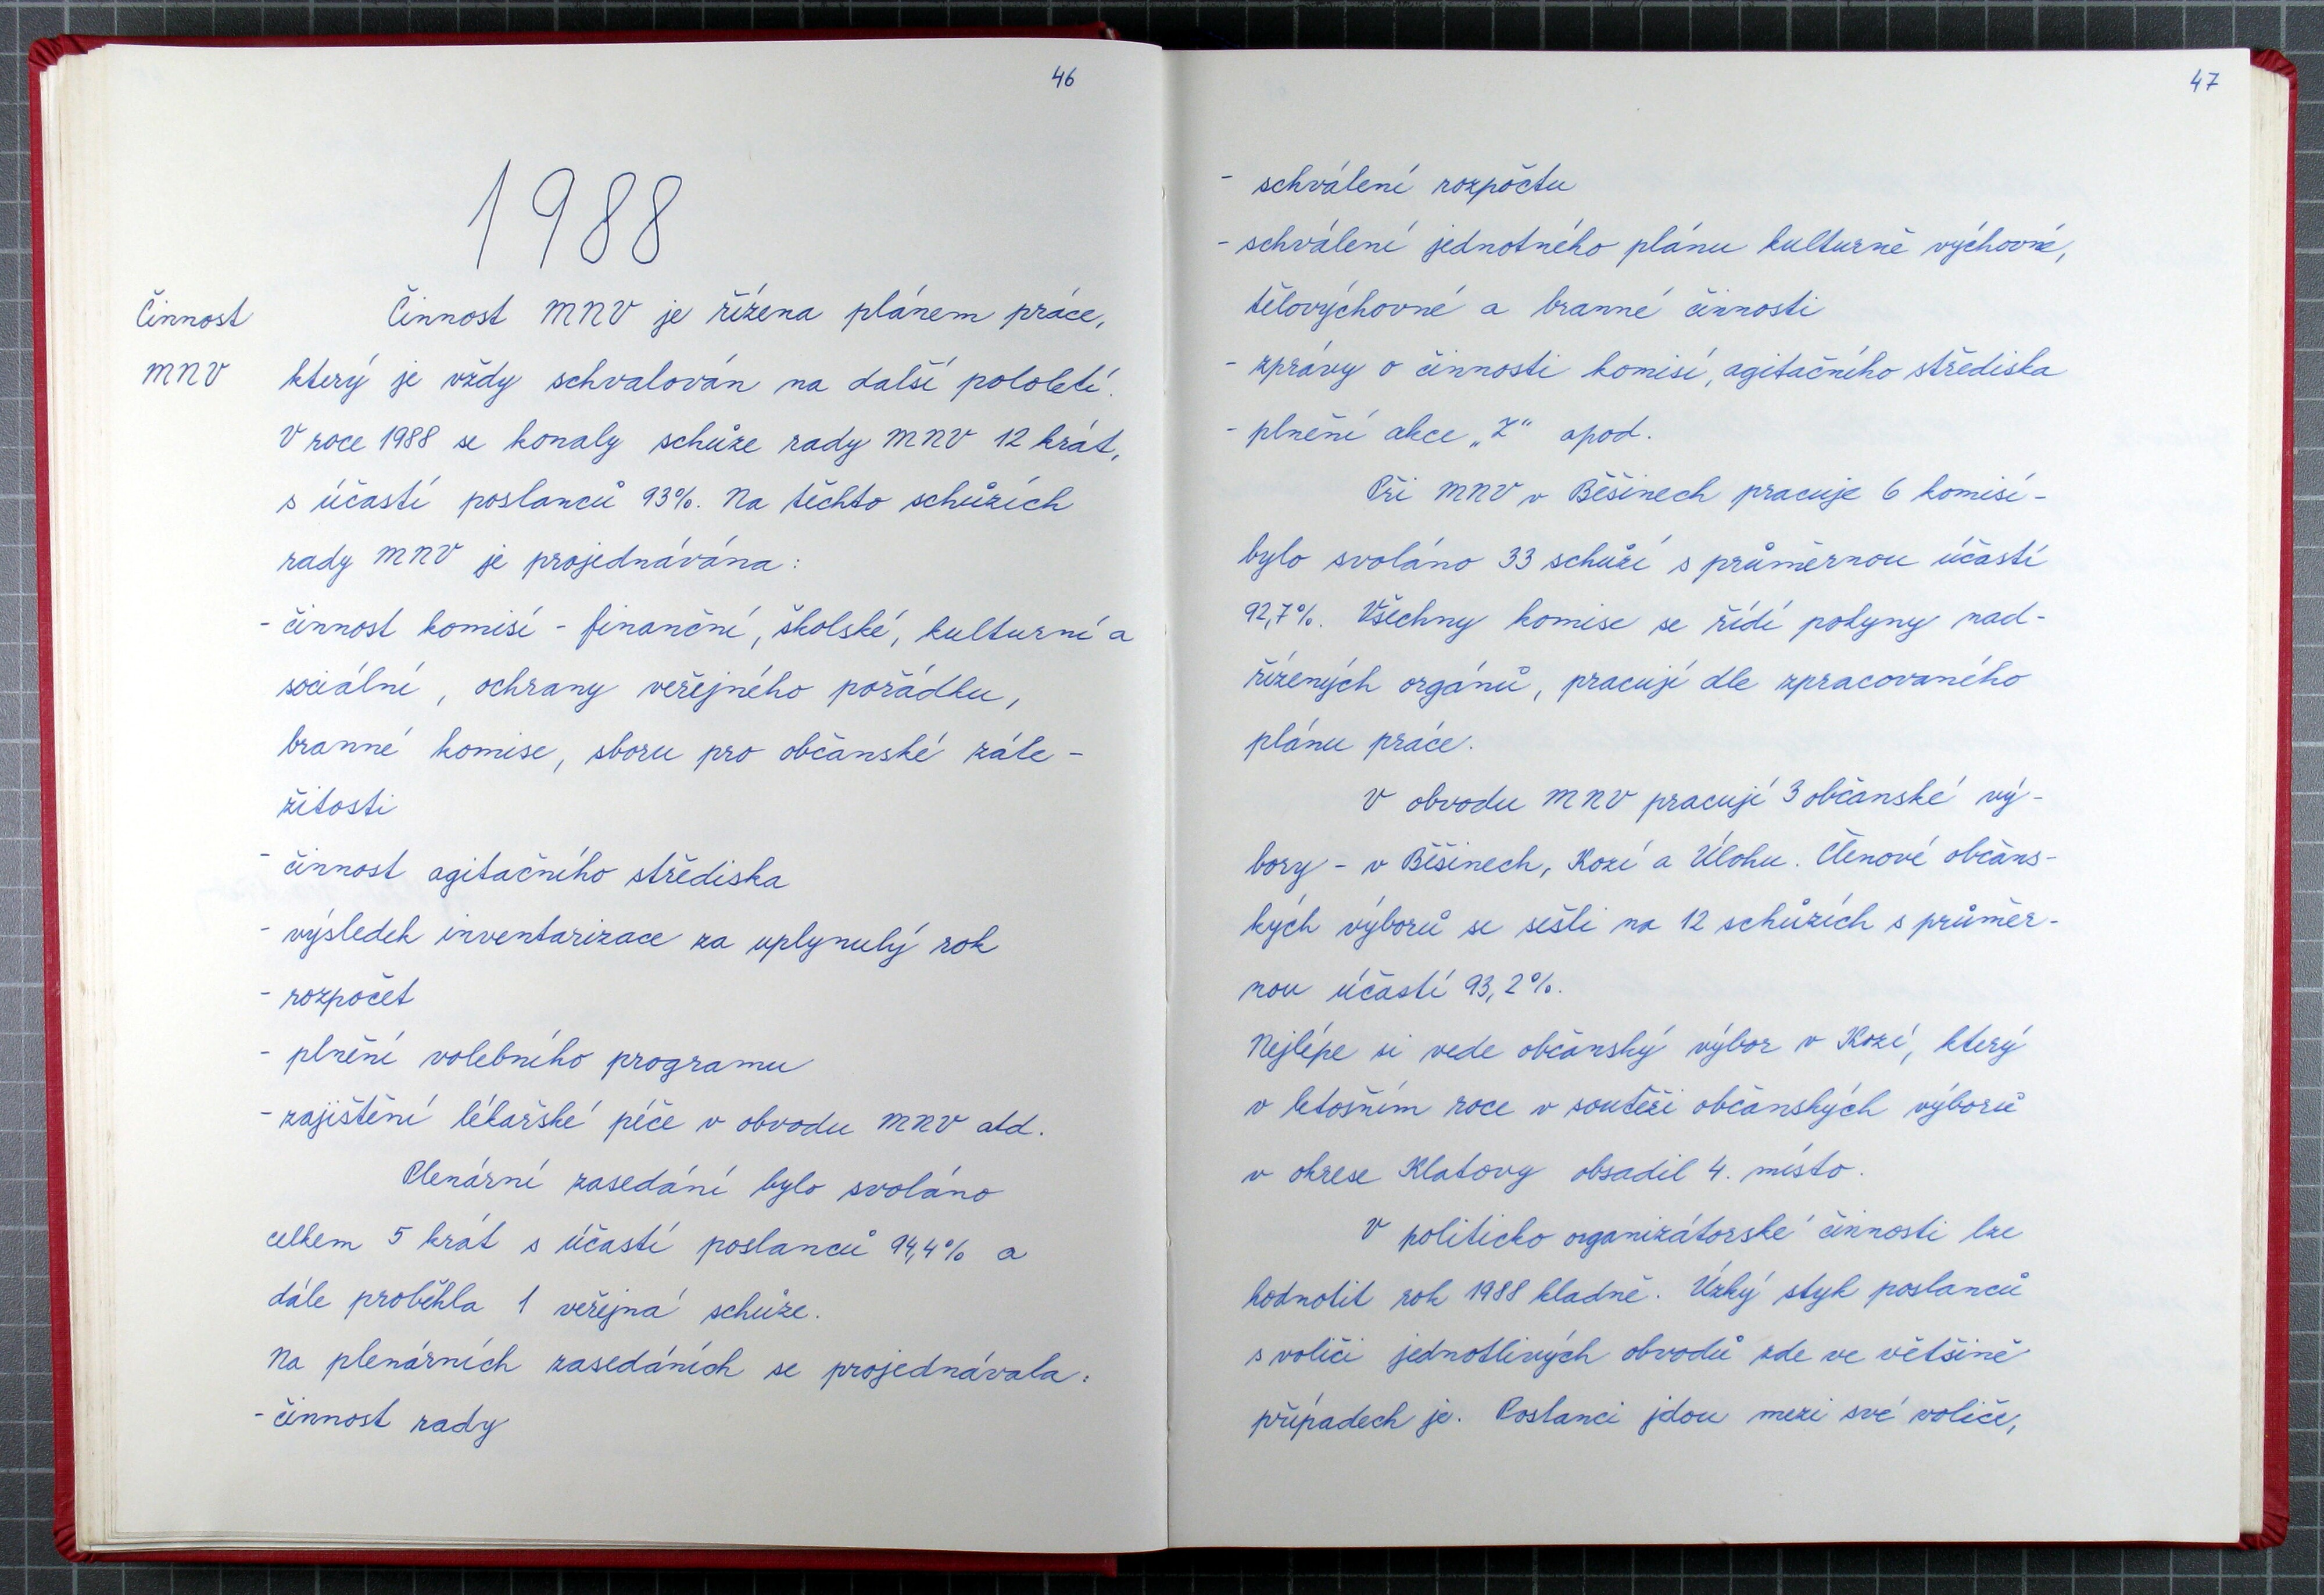 46
1988
Činnost
MNV
Činnost MNV je řízena plánem práce,
který je vždy schvalován na další pololetí.
V roce 1988 se konaly schůze rady MNV 12 krát,
s účastí poslanců 93%. Na těchto schůzích
rady MNV je projednávána:
- činnost komisí - finanční, školské, kulturní a
sociální, ochrany veřejného pořádku,
branné komise, sboru pro občanské zále-
žitosti
- činnost agitačního střediska
- výsledek inventarizace za uplynulý rok
- rozpočet
- plnění volebního programu
- zajištění lékařské péče v obvodu MNV atd.
Plenární zasedání bylo svoláno
celkem 5 krát s účastí poslanců 94,4% a
dále proběhla 1 veřejná schůze.
Na plenárních zasedáních se projednávala:
- činnost rady
47
- schválení rozpočtu
- schválení jednotného plánu kulturně výchovné,
tělovýchovné a branné činnosti
- zprávy o činnosti komisí, agitačního střediska
- plnění akce „Z" apod.
Při MNV v Běšinech pracuje 6 komisí -
bylo svoláno 33 schůzí s průměrnou účastí
92,7%. Všechny komise se řídí pokyny nad-
řízených orgánů, pracují dle zpracovaného
plánu práce.
V obvodu MNV pracují 3 občanské vý-
bory - v Běšinech, Kozí a Úlohu. Členové občans-
kých výborů se sešli na 12 schůzích s průměr-
nou účastí 93,2%.
Nejlépe si vede občanský výbor v Kozí, který
v letošním roce v soutěži občanských výborů
v okrese Klatovy obsadil 4. místo.
V politicko organizátorské činnosti lze
hodnotit rok 1988 kladně. Úzký styk poslanců
s voliči jednotlivých obvodů zde ve většině
případech je. Poslanci jdou mezi své voliče,